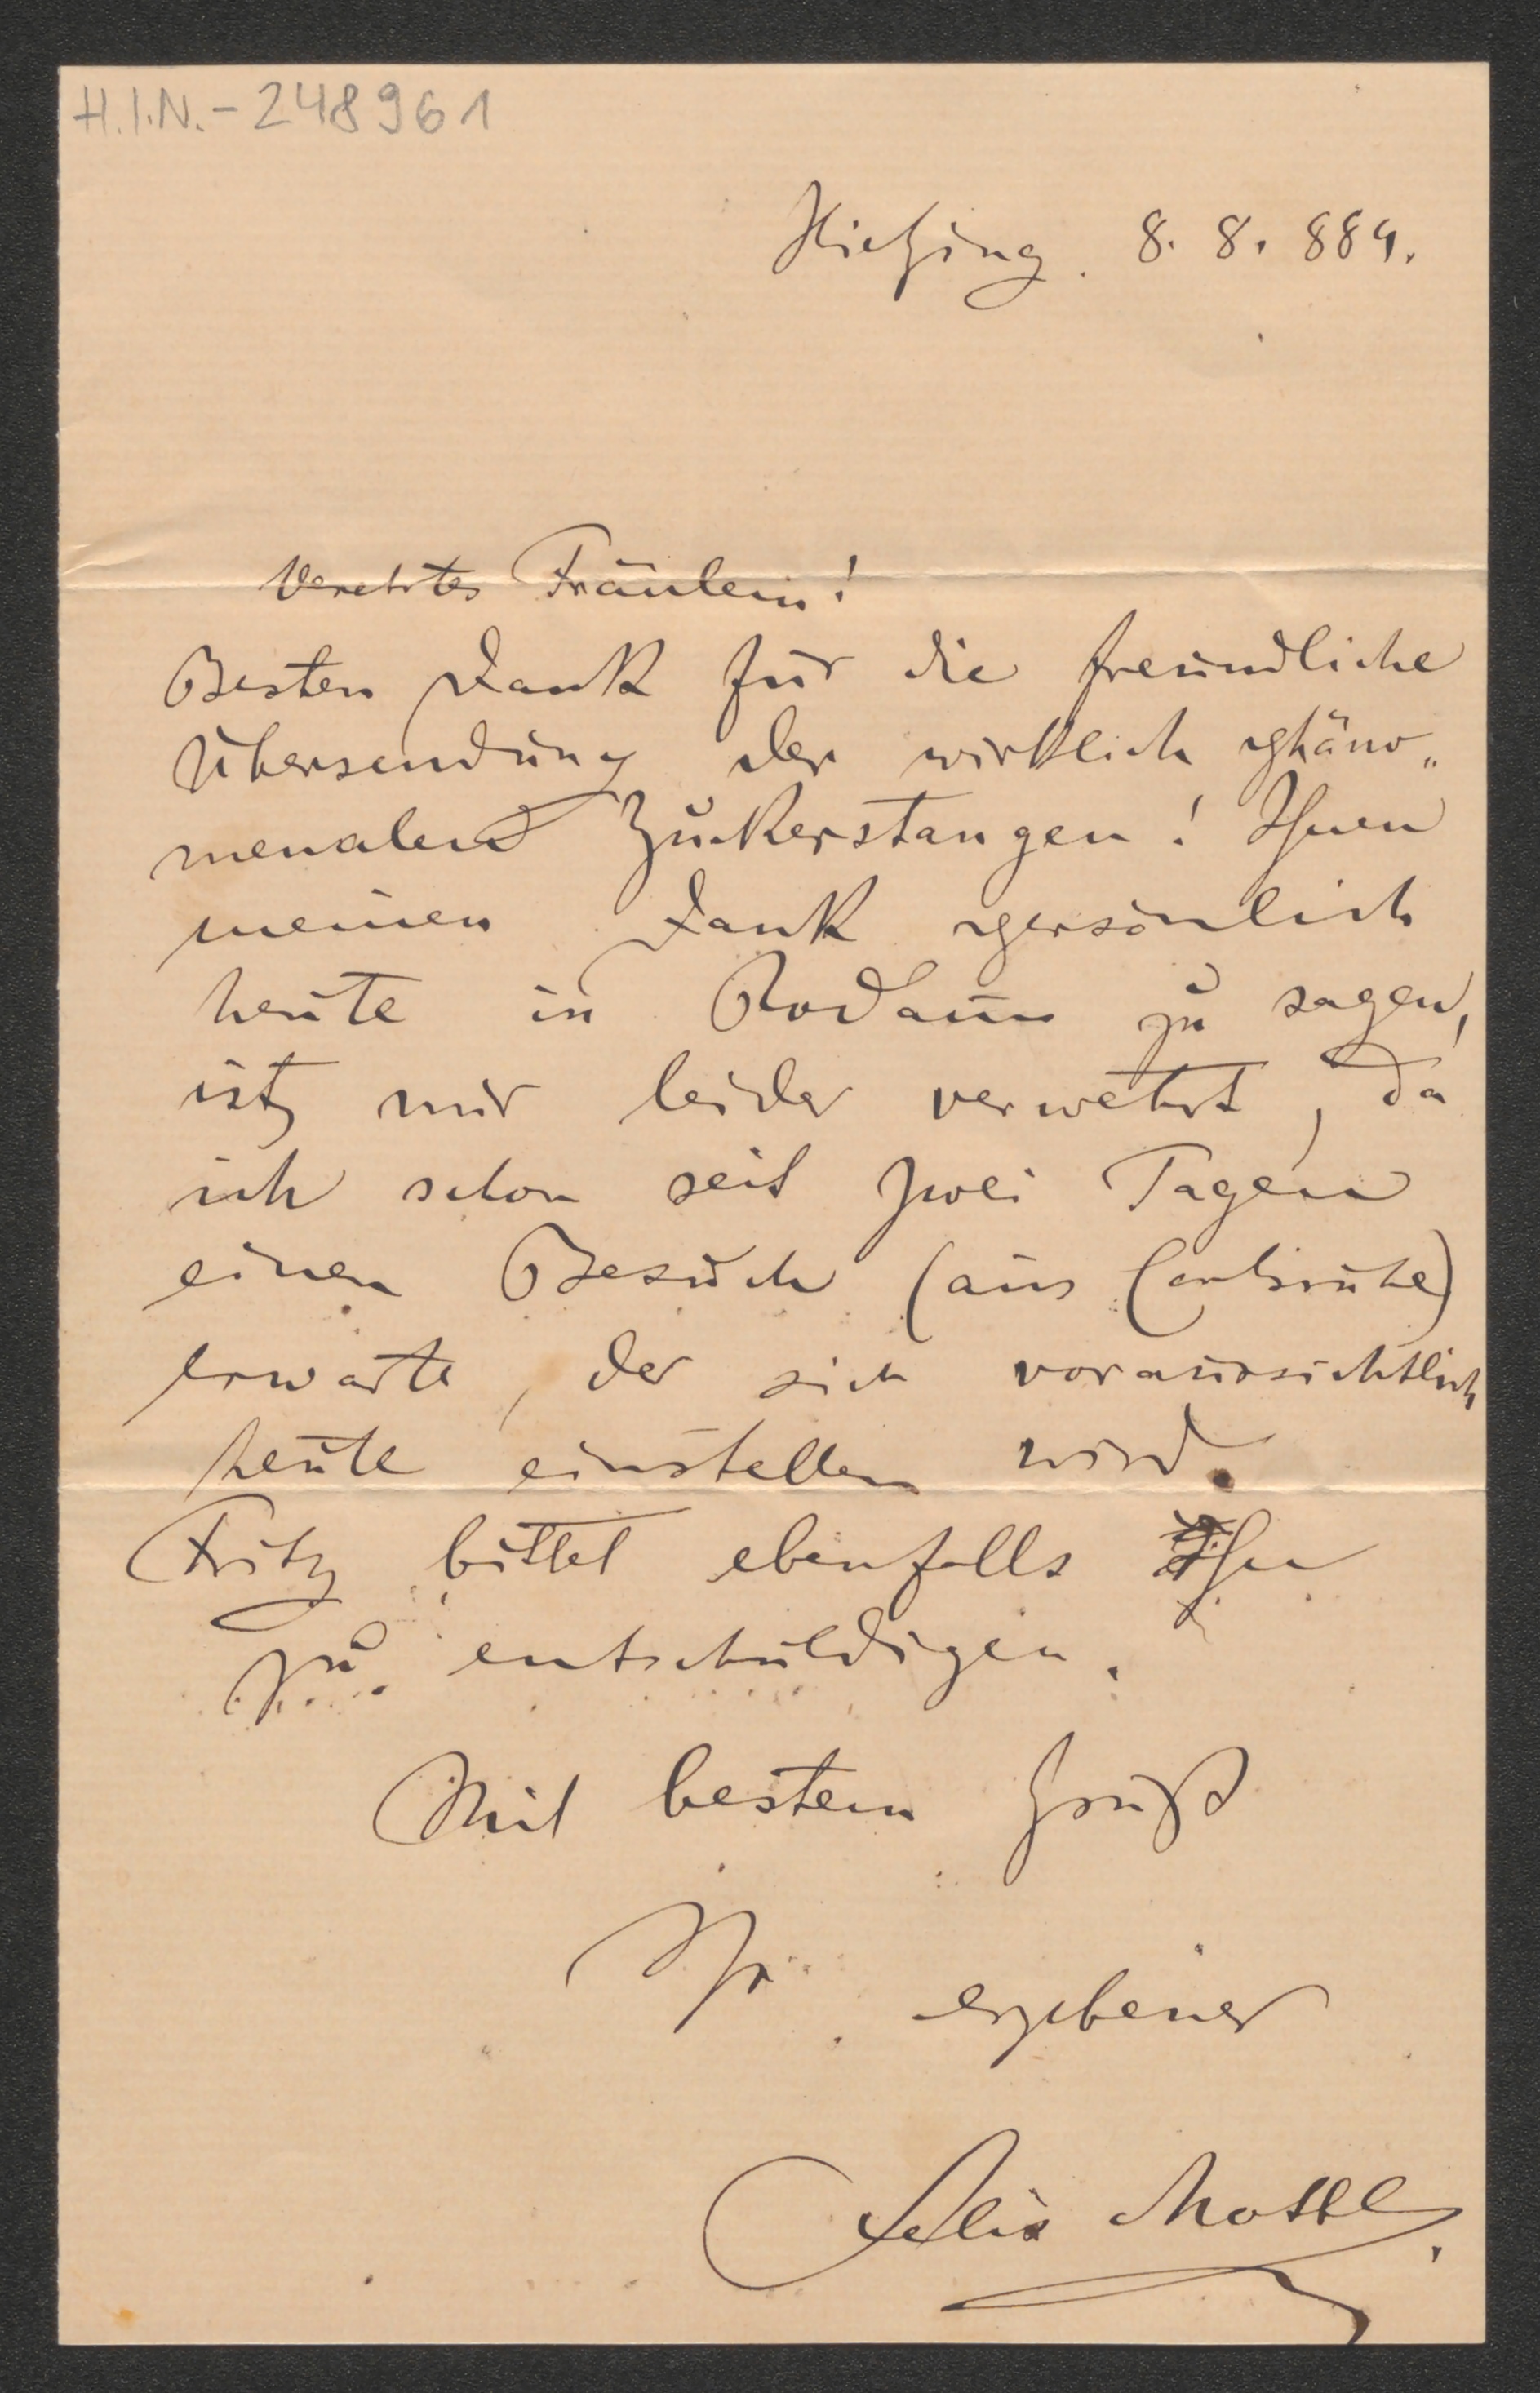 H.I.N.-248961
Hietzing. 8. 8. 884.
Verehrtes Fräulein!
Besten Dank für die freundliche
Übersendung der wirklich phäno„
menalen Zuckerstangen! Ihnen
meinen Dank persönlich
heute in Rodaun zu sagen,
ist mir leider verwehrt, da
ich schon seit zwei Tagen
einen Besuch (aus Carlsruhe)
erwarte, der sich voraussichtlich
heute einstellen wird.
Fritz bittet ebenfalls Ihn
zu entschuldigen.
Mit bestem Gruß
Ihr ergebener
Felix Mottl.